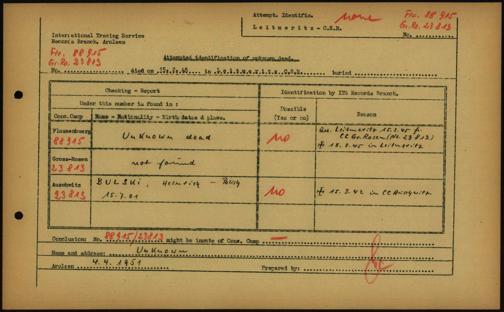 Attempt. Identific. none
Fro. 88 915
Gr. Ro. 23 813
Leitmeritz - C.S.R. No.
International Tracing Service
Records Branch, Arolsen
Fro. 88915
Gr. Ro. 23813
Attempted identification of unknown dead.
No. died on in Leitmeritz C.S.R. buried
Checking - Report
Identification by ITS Records Branch.
Under this number is found in:
Possible (Yes or no)
Reason
Conc. Camp
Name - Nationality - Birth dates & place.
Flossenbuerg
88915
Unknown dead
no
Leitmeritz 15.2.45 fr.
CC Gr. Rosen (Nr. 23812)
+ 18.2.45 in Leitmeritz
Gross-Rosen
23813
not found
Auschwitz
23813
BULSKI, Heinrich - Polish
15.7.01
no
+ 15.2.42 in CC Auschwitz
Conclusion: No. 88915/23813 might be inmate of Conc. Camp —
Name and address: Unknown
Arolsen 4.4.1951
Prepared by: